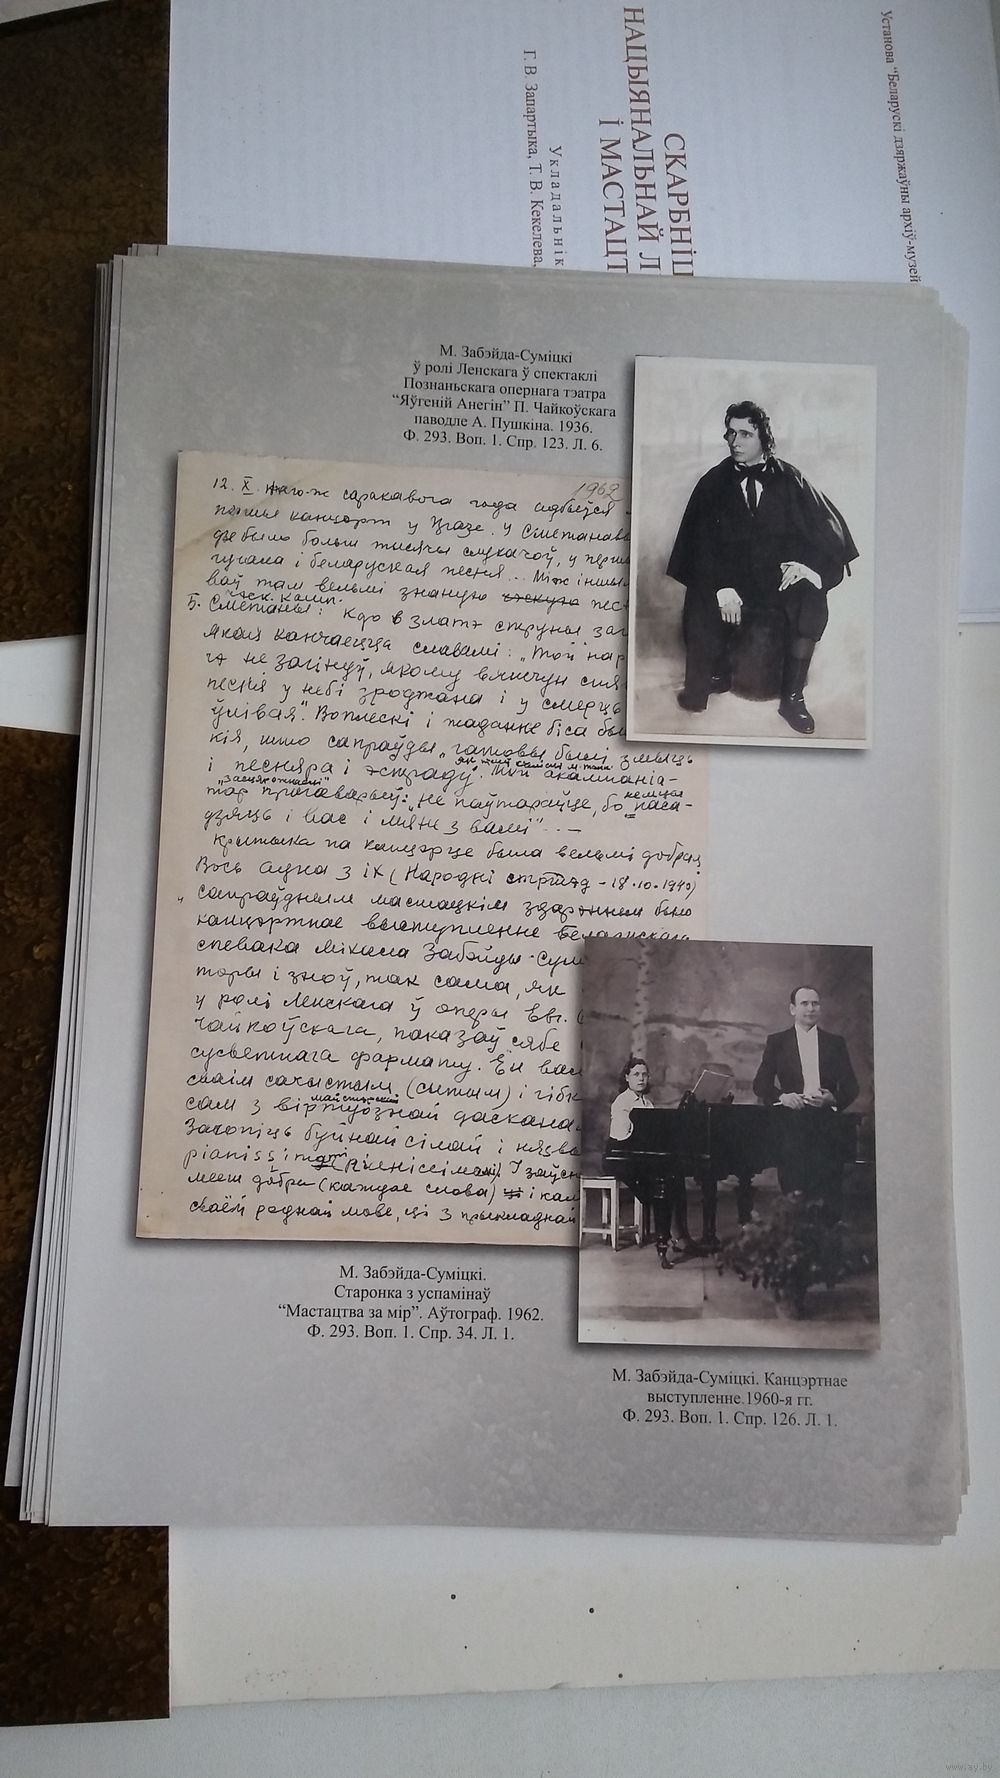 Установа “Беларускі дзяржаўны архіў-музей
СКАРБНІЦ
НАЦЫЯНАЛЬНАЙ Л
І МАСТАЦТ
Укладальнік
Г. В. Запартыка, Т. В. Кекелева,
М. Забэйда-Суміцкі
ў ролі Ленскага ў спектаклі
Познаньскага опернага тэатра
“Яўгеній Анегін” П. Чайкоўскага
паводле А. Пушкіна. 1936.
Ф. 293. Воп. 1. Спр. 123. Л. 6.
1962
12. X. саракавога года адбыўся
першы канцэрт у Празе. У Сметанава
дзе было больш тысячы слухачоў, у перш
гучала і беларуская песня... Між іншым
ваў там вельмі знаную ческую пес
ческ. камп.
Б. Сметаны: Кдо в злате струны заг
якая канчаецца славамі: „Той нар
не загінуў, якому вяшчун спя
песня у небі зроджана і у смерць
ўлівая”. Воплескі і жаданне біса бы
кія, што сапраўды „гатовы былі змыць
і песняра і эстраду”. Мой акампаніа-
немцы
тар прагаварыў: „не паўтарайце, бо паса-
дзяць і вас і мяне з вамі”... —
Крытыка па канцэрце была вельмі добрай
Вось адна з іх (Народні - 18.10.1940)
„сапраўдным мастацкім здарэннем было
канцэртнае выступленне Беларускага
спевака Міхала Забэйды-Сумі
торы і зноў, так сама, як
у ролі Ленскага ў оперы Евг.
Чайкоўскага, паказаў сябе
сусветнага фармату. Ён вал
сваім сачыстым (сытым) і гібк
майстэрскі
сам з віртуознай даскана
Захопіць буйнай сілай і нязва
pianissimo (піяніссімо). І заўсё
мееш добра (каждае слова) ці і кал
сваёй роднай мове, ці з прыкладнай
М. Забэйда-Суміцкі.
Старонка з успамінаў
“Мастацтва за мір”. Аўтограф. 1962.
Ф. 293. Воп. 1. Спр. 34. Л. 1.
М. Забэйда-Суміцкі. Канцэртнае
выступленне.1960-я гг.
Ф. 293. Воп. 1. Спр. 126. Л. 1.
www.ay.by